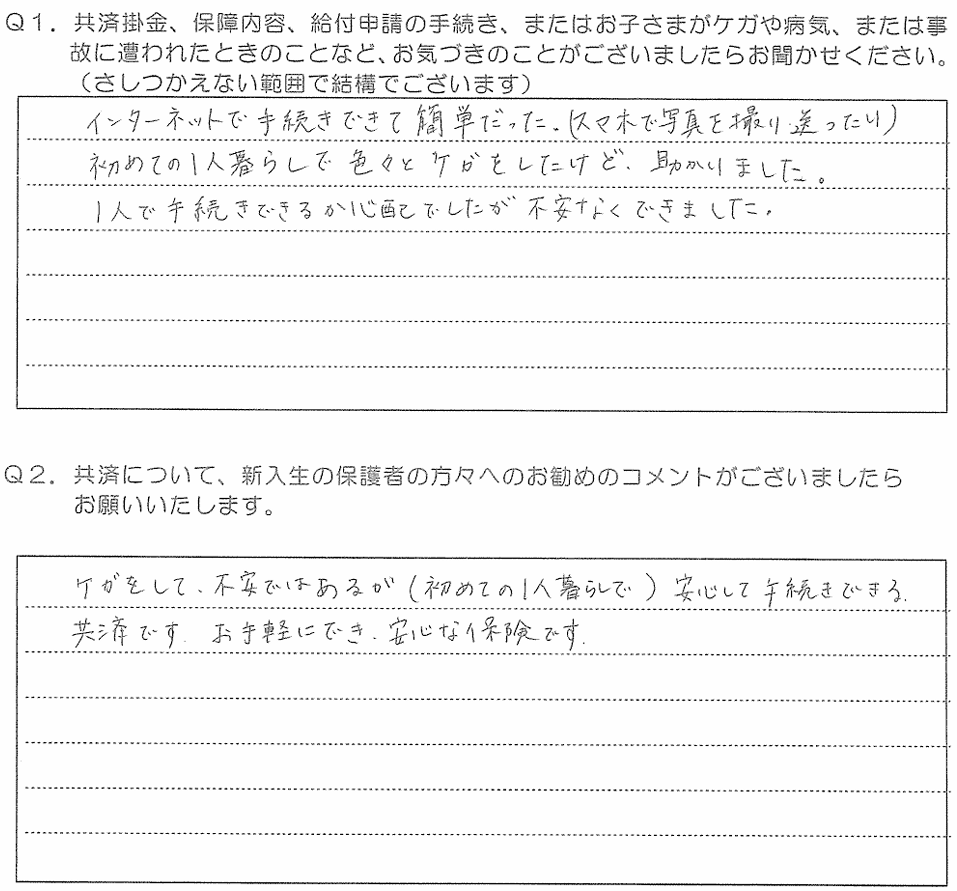 Q1．共済掛金、保障内容、給付申請の手続き、またはお子さまがケガや病気、または事
故に遭われたときのことなど、お気づきのことがございましたらお聞かせください。
（さしつかえない範囲で結構でございます）
インターネットで手続きできて簡単だった。(スマホで写真を撮り、送ったり)
初めての1人暮らしで色々とケガをしたけど、助かりました。
1人で手続きできるか心配でしたが不安なくできました。
Q2．共済について、新入生の保護者の方々へのお勧めのコメントがございましたら
お願いいたします。
ケガをして、不安ではあるが(初めての1人暮らしで)安心して手続きできる。
共済です。お手軽にでき、安心な保険です。